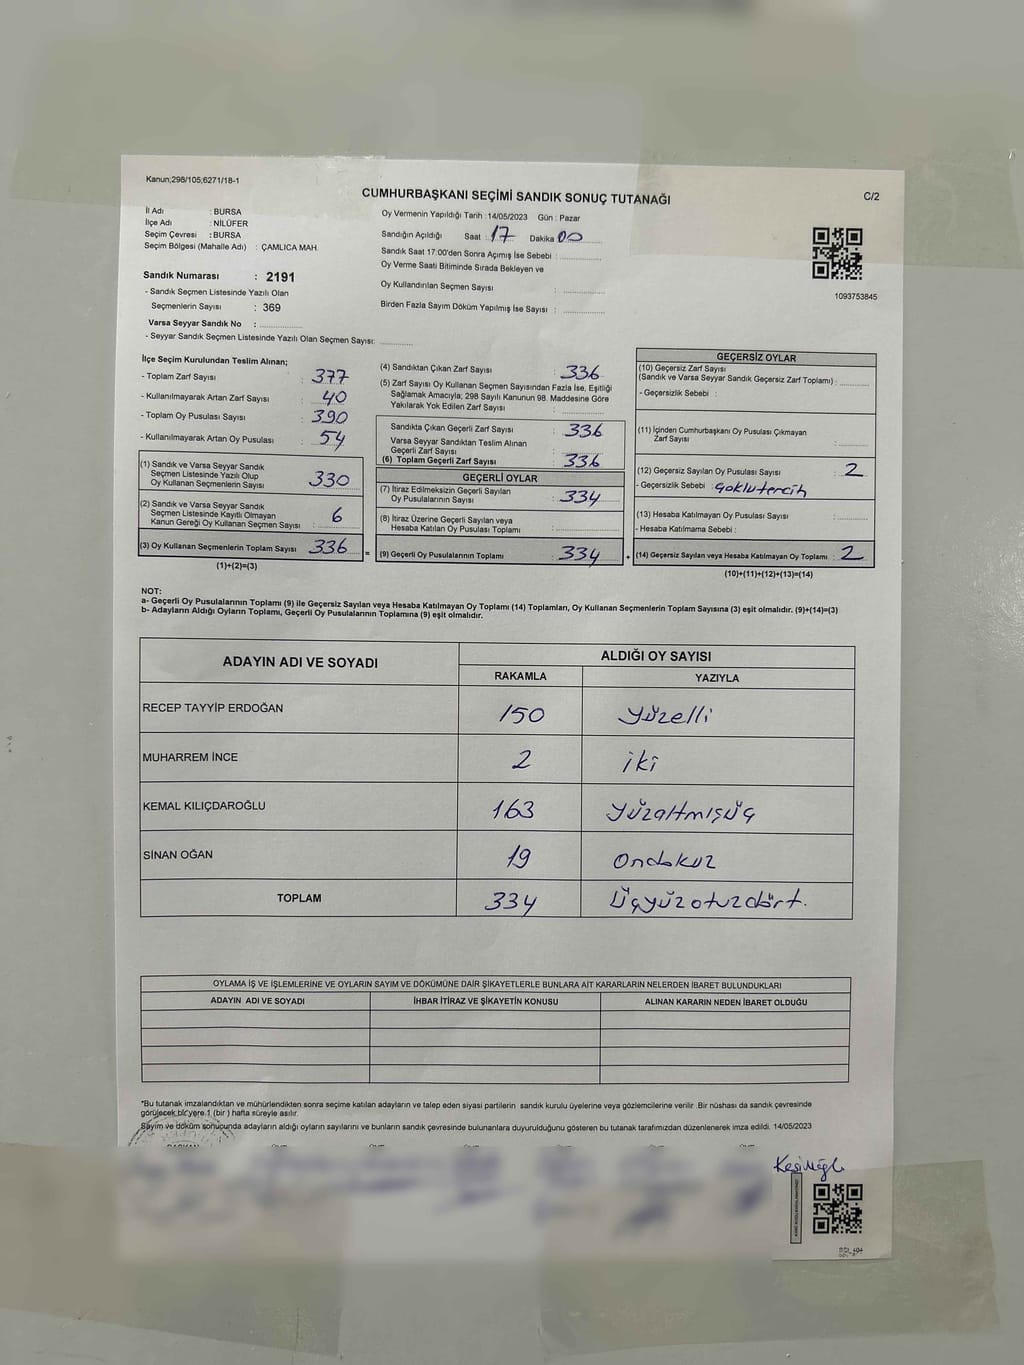 Kanun;298/105,6271/18-1
CUMHURBAŞKANI SEÇİMİ SANDIK SONUÇ TUTANAĞI
C/2
İl Adı : BURSA
İlçe Adı : NİLÜFER
Seçim Çevresi : BURSA
Seçim Bölgesi (Mahalle Adı) : ÇAMLICA MAH.
Oy Vermenin Yapıldığı Tarih :14/05/2023 Gün : Pazar
Sandığın Açıldığı Saat : 17 Dakika 00
Sandık Saat 17:00'den Sonra Açımış İse Sebebi :
Oy Verme Saati Bitiminde Sırada Bekleyen ve
Oy Kullandırılan Seçmen Sayısı :
Birden Fazla Sayım Döküm Yapılmış İse Sayısı :
1093753845
Sandık Numarası : 2191
- Sandık Seçmen Listesinde Yazılı Olan
Seçmenlerin Sayısı : 369
Varsa Seyyar Sandık No :
- Seyyar Sandık Seçmen Listesinde Yazılı Olan Seçmen Sayısı:
İlçe Seçim Kurulundan Teslim Alınan;
- Toplam Zarf Sayısı : 377
- Kullanılmayarak Artan Zarf Sayısı : 40
- Toplam Oy Pusulası Sayısı : 390
- Kullanılmayarak Artan Oy Pusulası : 54
(1) Sandık ve Varsa Seyyar Sandık
Seçmen Listesinde Yazılı Olup
Oy Kullanan Seçmenlerin Sayısı : 330
(2) Sandık ve Varsa Seyyar Sandık
Seçmen Listesinde Kayıtlı Olmayan
Kanun Gereği Oy Kullanan Seçmen Sayısı : 6
(3) Oy Kullanan Seçmenlerin Toplam Sayısı : 336
(1)+(2)=(3)
(4) Sandıktan Çıkan Zarf Sayısı : 336
(5) Zarf Sayısı Oy Kullanan Seçmen Sayısından Fazla İse, Eşitliği
Sağlamak Amacıyla; 298 Sayılı Kanunun 98. Maddesine Göre
Yakılarak Yok Edilen Zarf Sayısı :
Sandıkta Çıkan Geçerli Zarf Sayısı : 336
Varsa Seyyar Sandıktan Teslim Alınan
Geçerli Zarf Sayısı :
(6) Toplam Geçerli Zarf Sayısı : 336
GEÇERLİ OYLAR
(7) İtiraz Edilmeksizin Geçerli Sayılan
Oy Pusulalarının Sayısı : 334
(8) İtiraz Üzerine Geçerli Sayılan veya
Hesaba Katılan Oy Pusulası Toplamı :
=
(9) Geçerli Oy Pusulalarının Toplamı : 334
GEÇERSİZ OYLAR
(10) Geçersiz Zarf Sayısı
(Sandık ve Varsa Seyyar Sandık Geçersiz Zarf Toplamı) :
- Geçersizlik Sebebi :
(11) İçinden Cumhurbaşkanı Oy Pusulası Çıkmayan
Zarf Sayısı :
(12) Geçersiz Sayılan Oy Pusulası Sayısı : 2
- Geçersizlik Sebebi : Çoklu tercih
(13) Hesaba Katılmayan Oy Pusulası Sayısı :
- Hesaba Katılmama Sebebi :
+
(14) Geçersiz Sayılan veya Hesaba Katılmayan Oy Toplamı : 2
(10)+(11)+(12)+(13)=(14)
NOT:
a- Geçerli Oy Pusulalarının Toplamı (9) ile Geçersiz Sayılan veya Hesaba Katılmayan Oy Toplamı (14) Toplamları, Oy Kullanan Seçmenlerin Toplam Sayısına (3) eşit olmalıdır. (9)+(14)=(3)
b- Adayların Aldığı Oyların Toplamı, Geçerli Oy Pusulalarının Toplamına (9) eşit olmalıdır.
ADAYIN ADI VE SOYADI
ALDIĞI OY SAYISI
RAKAMLA YAZIYLA
RECEP TAYYİP ERDOĞAN 150 Yüzelli
MUHARREM İNCE 2 iki
KEMAL KILIÇDAROĞLU 163 Yüzaltmışüç
SİNAN OĞAN 19 Ondokuz
TOPLAM 334 Üçyüzotuzdört.
OYLAMA İŞ VE İŞLEMLERİNE VE OYLARIN SAYIM VE DÖKÜMÜNE DAİR ŞİKAYETLERLE BUNLARA AİT KARARLARIN NELERDEN İBARET BULUNDUKLARI
ADAYIN ADI VE SOYADI İHBAR İTİRAZ VE ŞİKAYETİN KONUSU ALINAN KARARIN NEDEN İBARET OLDUĞU
*Bu tutanak imzalandıktan ve mühürlendikten sonra seçime katılan adayların ve talep eden siyasi partilerin sandık kurulu üyelerine veya gözlemcilerine verilir. Bir nüshası da sandık çevresinde
görülecek bir yere 1 (bir) hafta süreyle asılır.
Sayım ve döküm sonucunda adayların aldığı oyların sayılarını ve bunların sandık çevresinde bulunanlara duyurulduğunu gösteren bu tutanak tarafımızdan düzenlenerek imza edildi. 14/05/2023